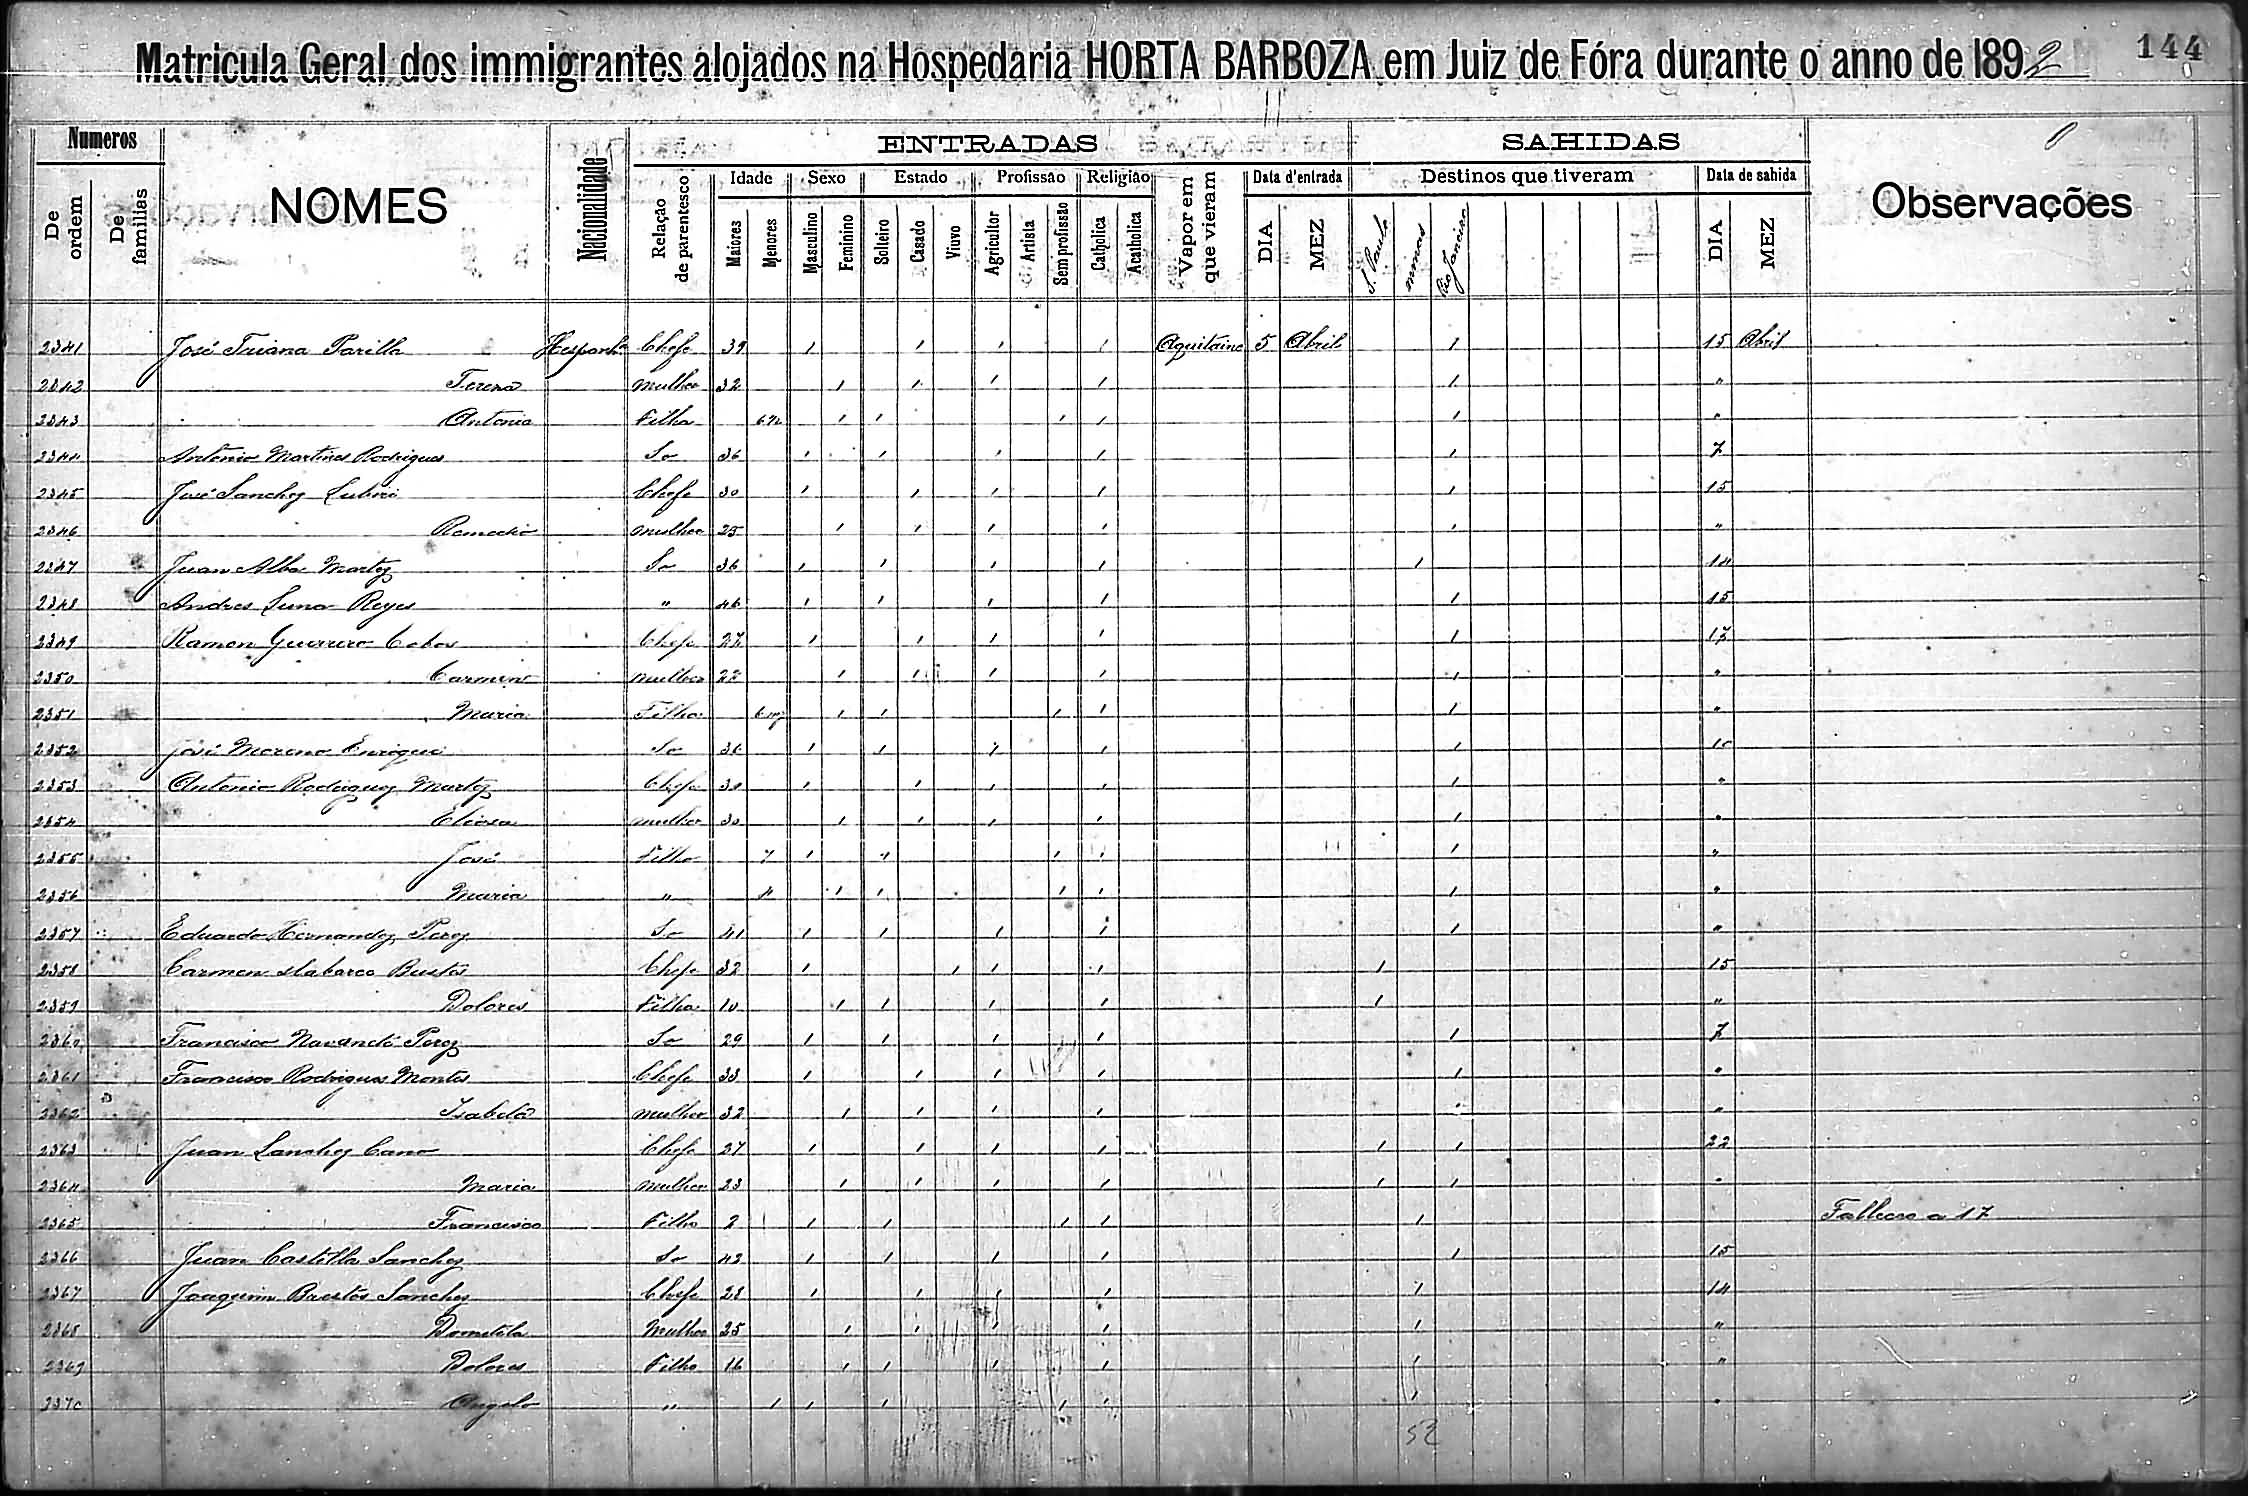 Matricula Geral dos immigrantes alojados na Hospedaria HORTA BARBOZA em Juiz de Fóra durante o anno de 1892 144
Numeros NOMES Nacionalidade ENTRADAS SAHIDAS Observações
De ordem De familias Relação de parentesco Idade Sexo Estado Profissão Religião Vapor em que vieram Data d'entrada Destinos que tiveram Data de sahida
Maiores Menores Masculino Feminino Solteiro Casado Viuvo Agricultor Artista Sem profissão Catholica Acatholica DIA MEZ S. Paulo Minas Rio Janeiro DIA MEZ
2341 José Triana Parilla Hespanha Chefe 39 1 1 1 1 Aquitaine 5 Abril 1 15 Abril
2342 Tereza mulher 32 1 1 1 1 1 "
2343 Antonia Filha 1 1 1 1 1 "
2344 Antonio Martines Rodrigues So 36 1 1 1 1 1 7
2345 José Sanchez Chefe 30 1 1 1 1 1 15
2346 Remedio mulher 25 1 1 1 1 1 "
2347 Juan Alba Martez So 36 1 1 1 1 1 14
2348 Andres Luna Reyes " 46 1 1 1 1 1 15
2349 Ramon Guerrero Cobos Chefe 27 1 1 1 1 1 17
2350 Carmen mulher 22 1 1 1 1 1 "
2351 Maria Filha 6 mz 1 1 1 1 1 "
2352 José Moreno Enrique So 36 1 1 1 1 1
2353 Antonio Rodriguez Martez Chefe 30 1 1 1 1 1 "
2354 mulher 30 1 1 1 1 1 "
2355 José Filho 7 1 " 1 1 1 "
2356 Maria " 1 1 1 1 1 "
2357 Eduardo Hernandez Perez So 41 1 1 1 1 1 "
2358 Carmen Bustos Chefe 32 1 1 1 1 1 15
2359 Dolores Filha 10 1 1 1 1 1 "
2360 Francisco Perez So 29 1 1 1 1 1 7
2361 Francisco Rodrigues Montes Chefe 33 1 1 1 1 1 "
2362 Isabela mulher 32 1 1 1 1 1 "
2363 Juan Sanchez Cano Chefe 27 1 1 1 1 1 1 22
2364 Maria mulher 23 1 1 1 1 1 1 "
2365 Francisco Filho 2 1 1 1 1 1 Falleceo a 17
2366 Juan Castilla Sanchez So 43 1 1 1 1 1 15
2367 Joaquim Bustos Sanchez Chefe 28 1 1 1 1 1 14
2368 Dometila Mulher 25 1 1 1 1 1 "
2369 Dolores Filha 16 1 1 1 1 1 "
2370 Angelo " 1 1 1 1 1 1 "
52